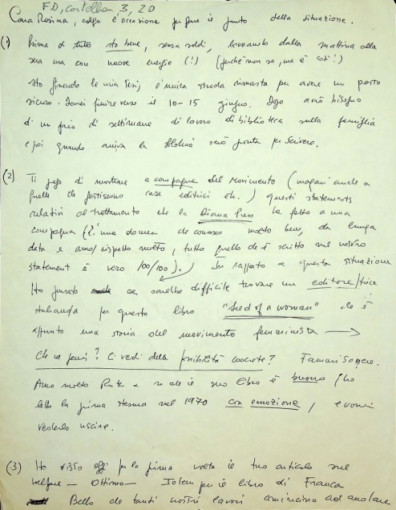 F.D, cartellone 3, 20
Cara Rosina, colgo l'occasione per fare il punto della situazione.
(1) Prima di tutto sto bene, senza soldi, lavorando dalla mattina alla
sera ma con nuove energie (!) (perché non so, ma è così!)
Sto finendo la mia tesi, è l'unica strada rimasta per avere un posto
sicuro. Dovrei finire verso il 10-15 giugno. Dopo avrò bisogno
di un paio di settimane di lavoro di biblioteca sulla famiglia
e poi quando arriva la sarò pronta per scrivere.
(2) Ti prego di mostrare a compagne del Movimento (magari anche a
quelle che possiamo case editrici etc.) questi statements
relativi al trattamento che la Diana Press ha fatto a una
compagna (è una donna che conosco molto bene, da lunga
data e amo/rispetto molto, tutto quello che è scritto nel nostro
statement è vero 100/100). In rapporto a questa situazione
Ho pensato se sarebbe difficile trovare un editore/trice
italiano/a per questo libro "Seed of a woman" che è
appunto una storia del movimento femminista →
Che ne pensi? Ci vedi delle possibilità concrete? Fammi sapere.
Amo molto Ruth e so che il suo libro è buono (ho
letto la prima stesura nel 1970 con emozione, e vorrei
vederlo uscire.
(3) Ho visto oggi per la prima volta il tuo articolo sul
welfare — Ottimo — Idem per il libro di Franca
Bello che tanti nostri lavori comincino ad andare